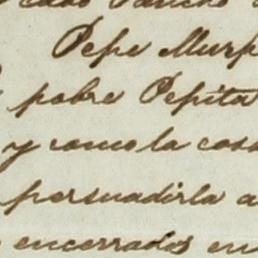 caso
Pepe Murp
pobre Pepita
y como la cosa
persuadirla a
encerrados en